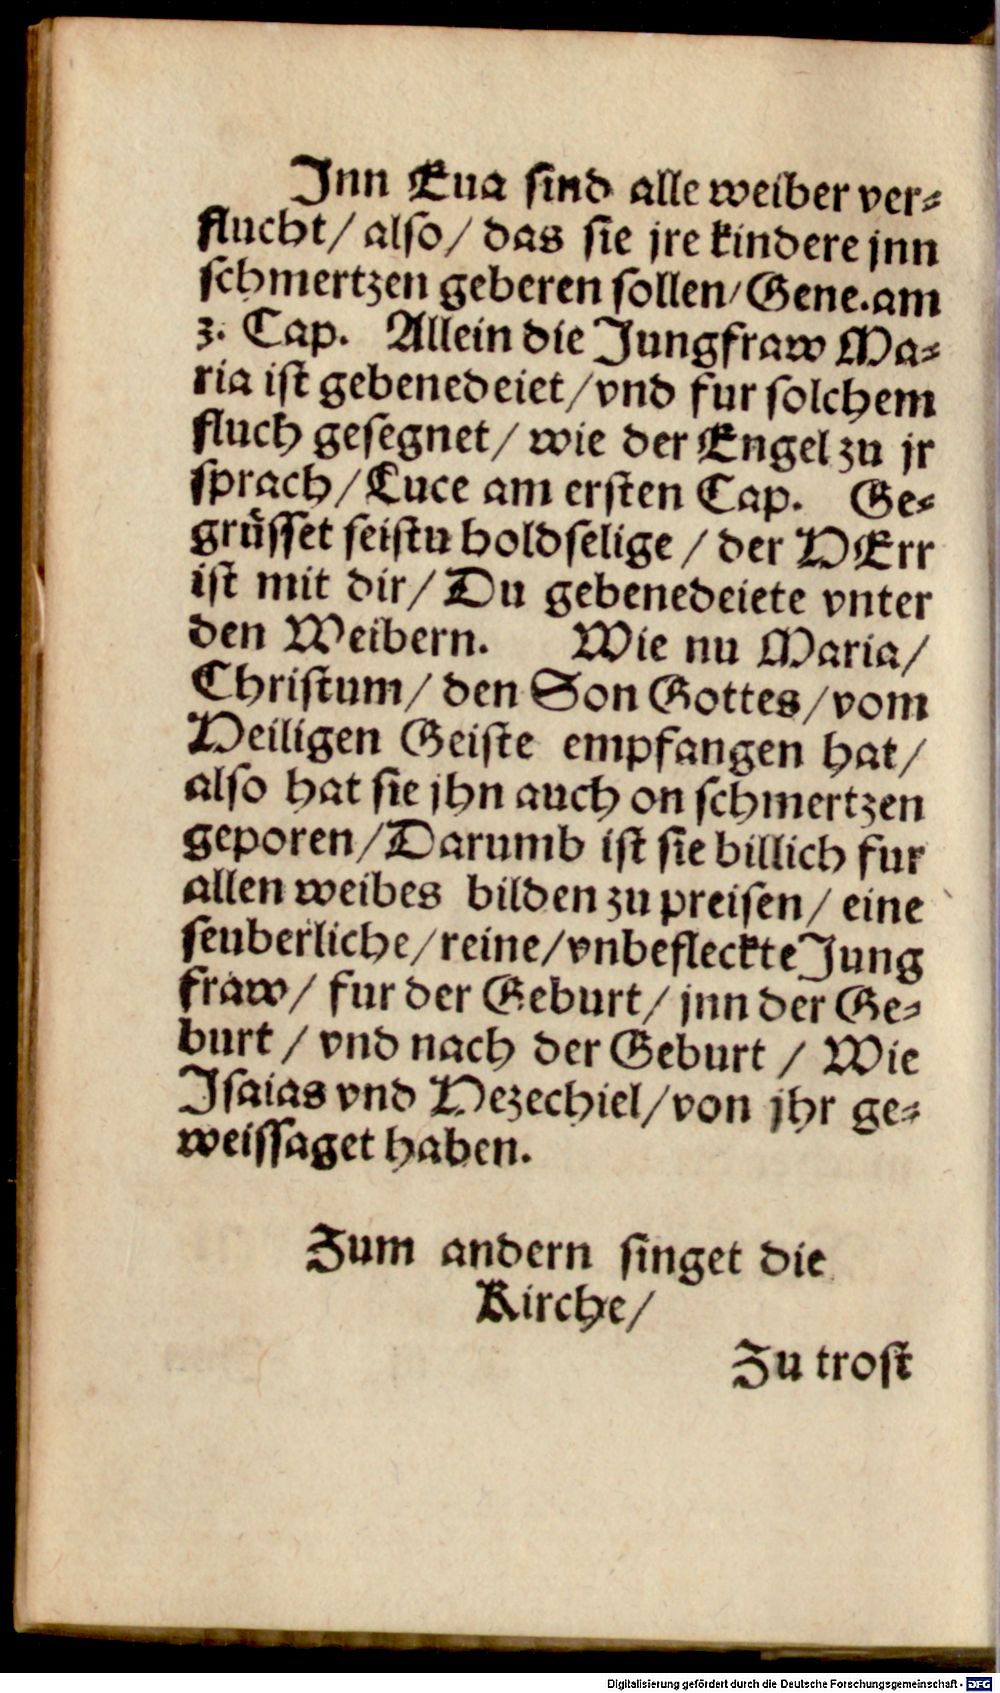 Jnn Eua sind alle weiber ver⸗
flucht/ also/ das sie jre kindere jnn
schmertzen geberen sollen/ Gene. am
3. Cap. Allein die Jungfraw Ma⸗
ria ist gebenedeiet/ vnd fur solchem
fluch gesegnet/ wie der Engel zu jr
sprach/ Luce am ersten Cap. Ge⸗
grüsset seistu holdselige/ der HErr
ist mit dir/ Du gebenedeiete vnter
den Weibern. Wie nu Maria/
Christum/ den Son Gottes/ vom
Heiligen Geiste empfangen hat/
also hat sie jhn auch on schmertzen
geporen/ Darumb ist sie billich fur
allen weibes bilden zu preisen/ eine
seuberliche/ reine/ vnbefleckte Jung
fraw/ fur der Geburt/ jnn der Ge⸗
burt/ vnd nach der Geburt/ Wie
Jsaias vnd Hezechiel/ von jhr ge⸗
weissaget haben.
Zum andern singet die
Kirche/
Zu trost
Digitalisierung gefördert durch die Deutsche Forschungsgemeinschaft - DFG